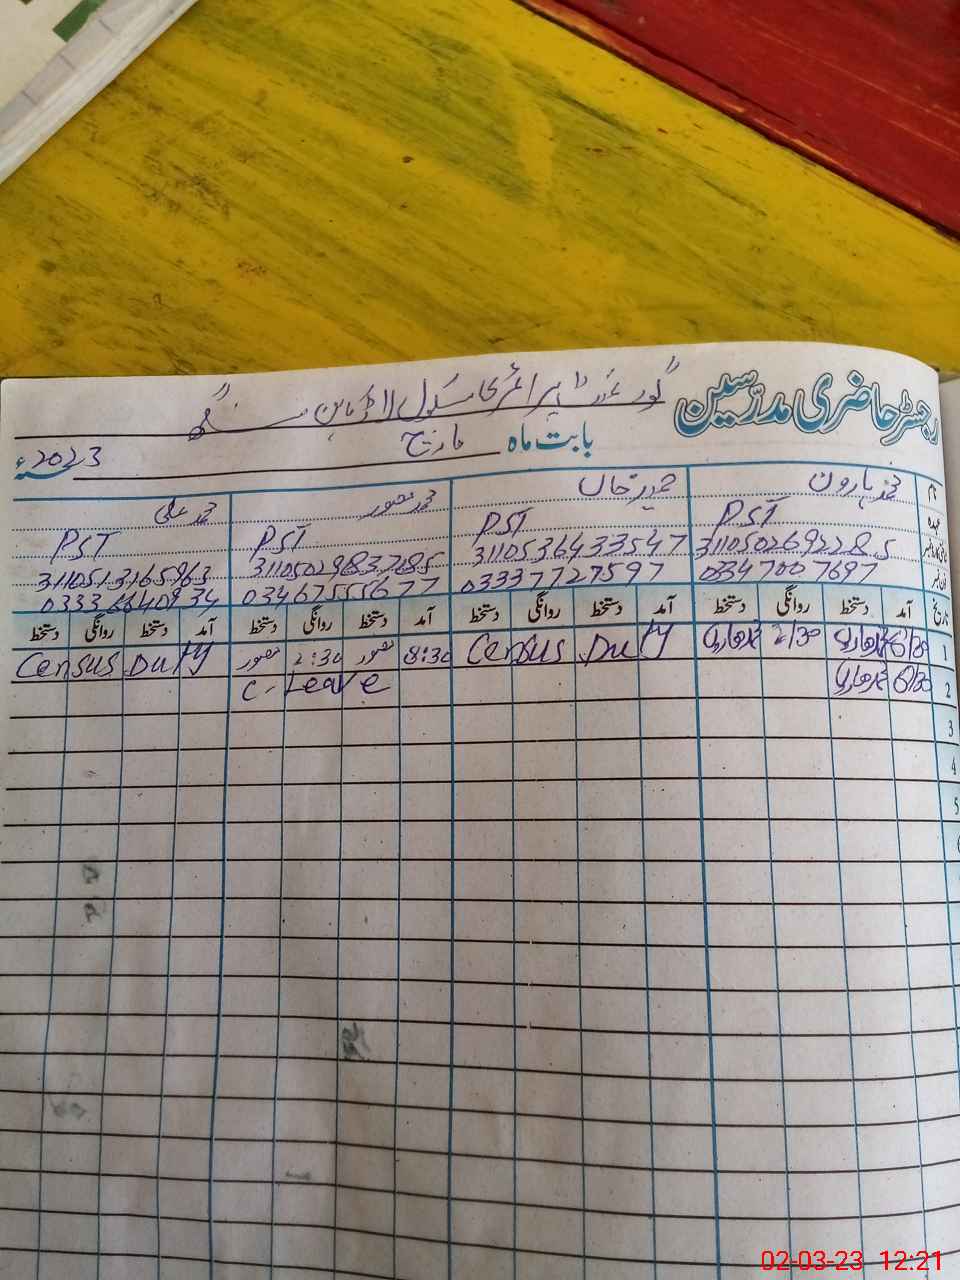 رجسٹر حاضری مدرّسین
گورنمنٹ پرائمری سکول
بابت ماہ مارچ 2023ء
نام محمد ہارون حیدر خان محمد منصور محمد علی
عہدہ PST PST PST PST
3110502692285 3110536433547 3110502983785 3110513165963
03470077697 03337727597 03467555677 03336640934
تاریخ آمد دستخط روانگی دستخط آمد دستخط روانگی دستخط آمد دستخط روانگی دستخط آمد دستخط روانگی دستخط
1 8/30 محمد ہارون 2/30 محمد ہارون Census Duty 8:30 منصور 2:30 منصور Census Duty
2 8/30 محمد ہارون C-Leave
3
4
5
6
02-03-23 12:21